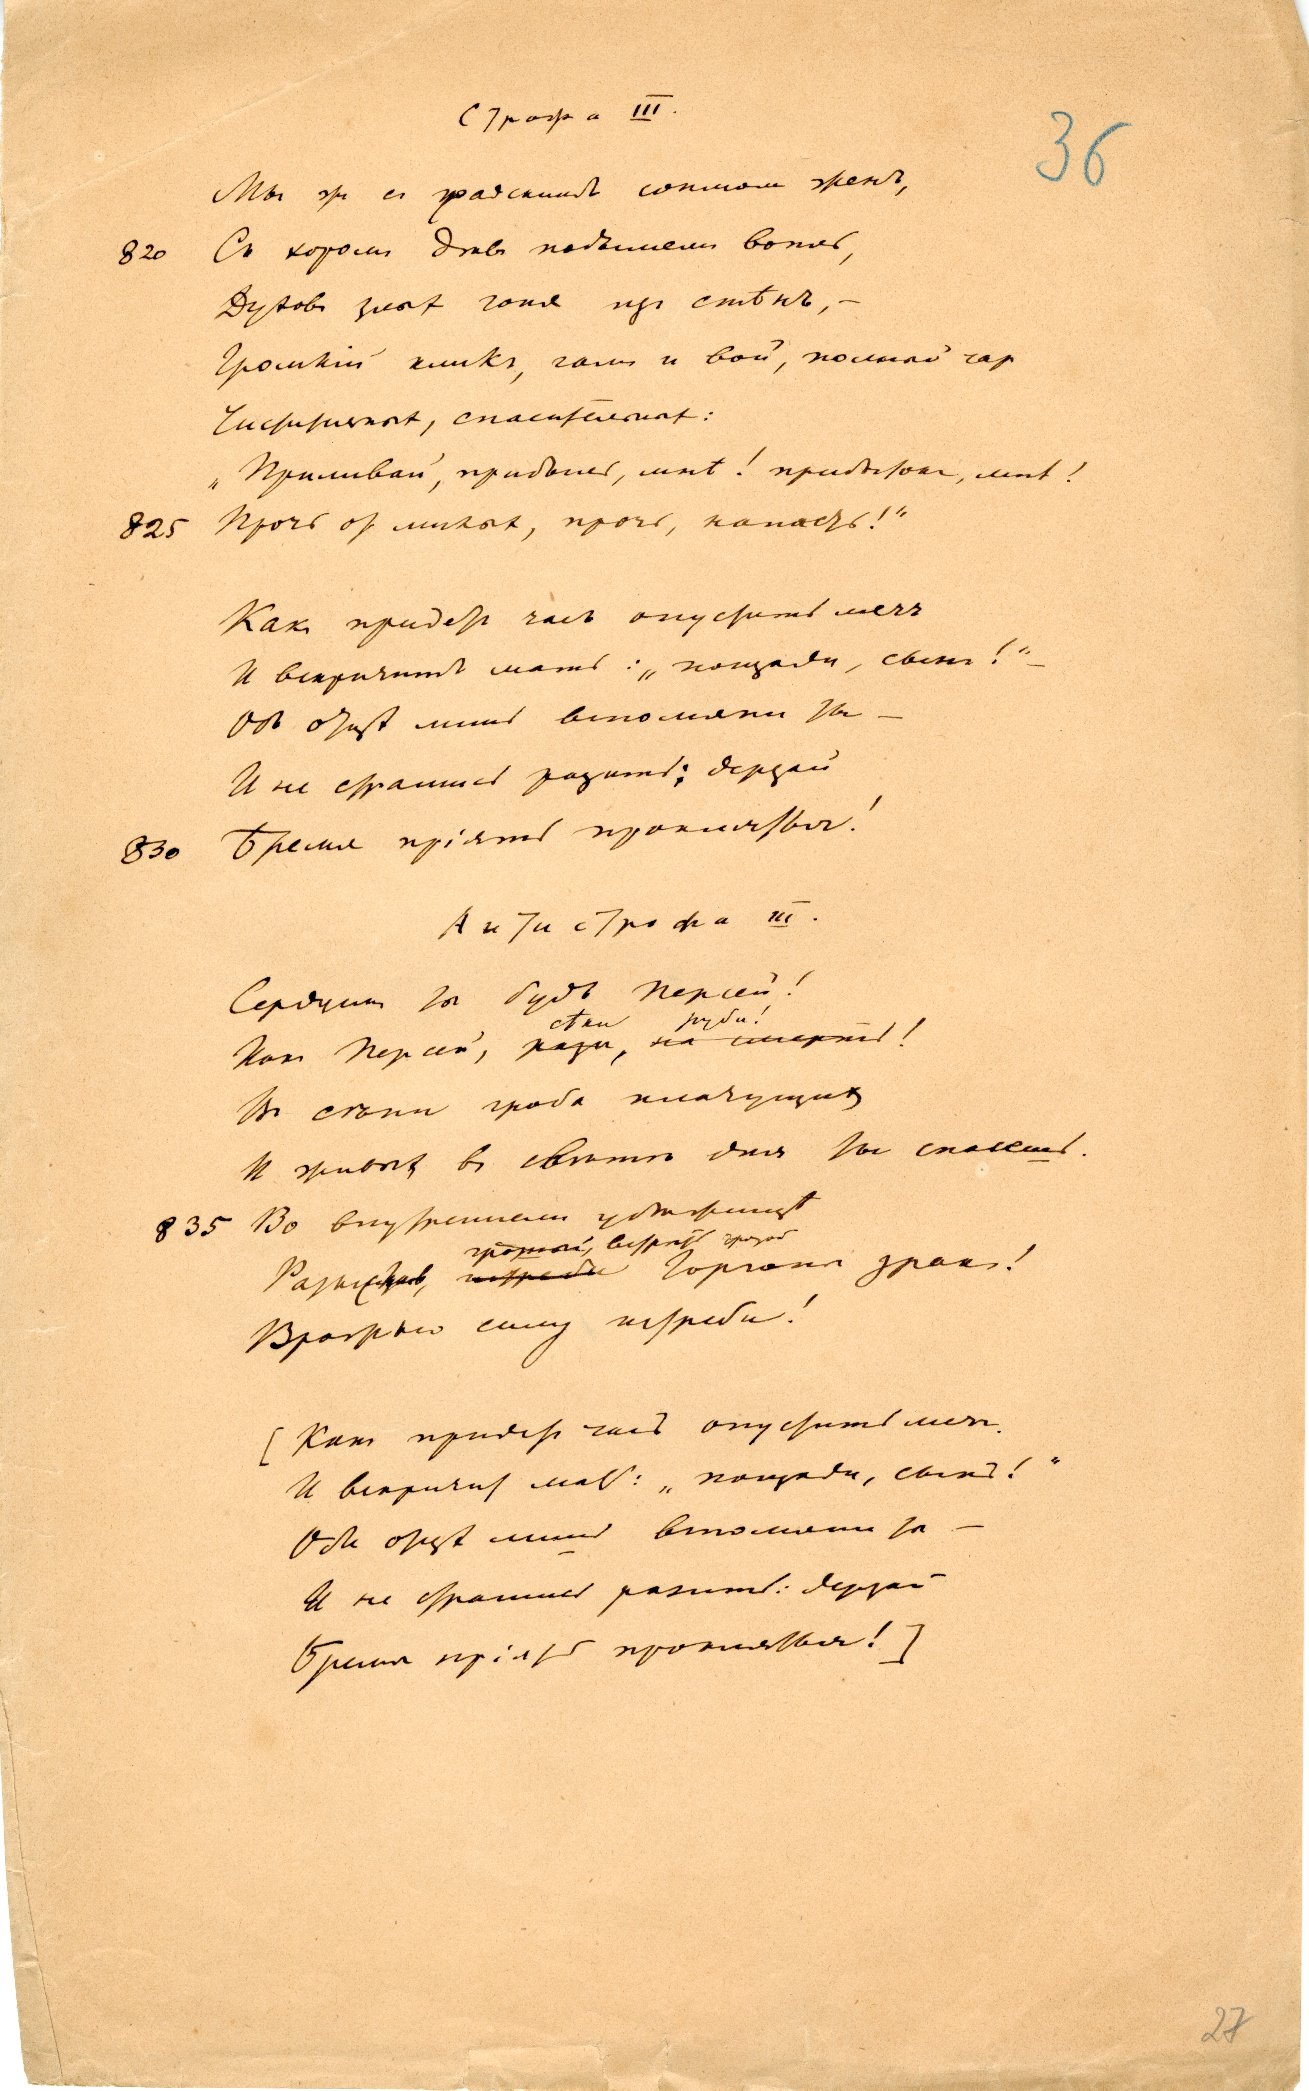 Строфа III.
36
Мы ж съ градскимъ сонмомъ женъ,
820 Съ хоромъ дѣвъ подымемъ вопль,
Духовъ злыхъ гоня изъ стѣнъ, –
Громкій кликъ, гамъ и вой, полный чар
Чистительныхъ, спасительныхъ:
„Приливай, прибыль, мнѣ! прибытокъ, мнѣ!
825 Прочь от милыхъ, прочь, напасть!“
Какъ придетъ часъ опустить мечъ
И вскричитъ мать: „пощади, сынъ!“ –
Объ отцѣ лишь вспомяни ты –
И не страшись разить; дерзай
830 Бремя пріять проклятья!
Антистрофа III.
Сердцемъ ты будь Персей!
сѣки руби!
Какъ Персей, рази, на смерть!
Въ сѣни гроба плачущихъ
И живыхъ въ свѣтѣ дня ты спасешь.
835 Во внутреннемъ убѣжищѣ
грозный, встрѣть грозой
Разыскавъ, истреби Горгоны зракъ!
Вражью силу истреби!
[ Какъ придетъ часъ опустить мечъ
И вскричитъ мать: „пощади, сынъ!“
Объ отцѣ лишь вспомяни ты –
И не страшись разить: дерзай
Бремя пріять проклятья! ]
27